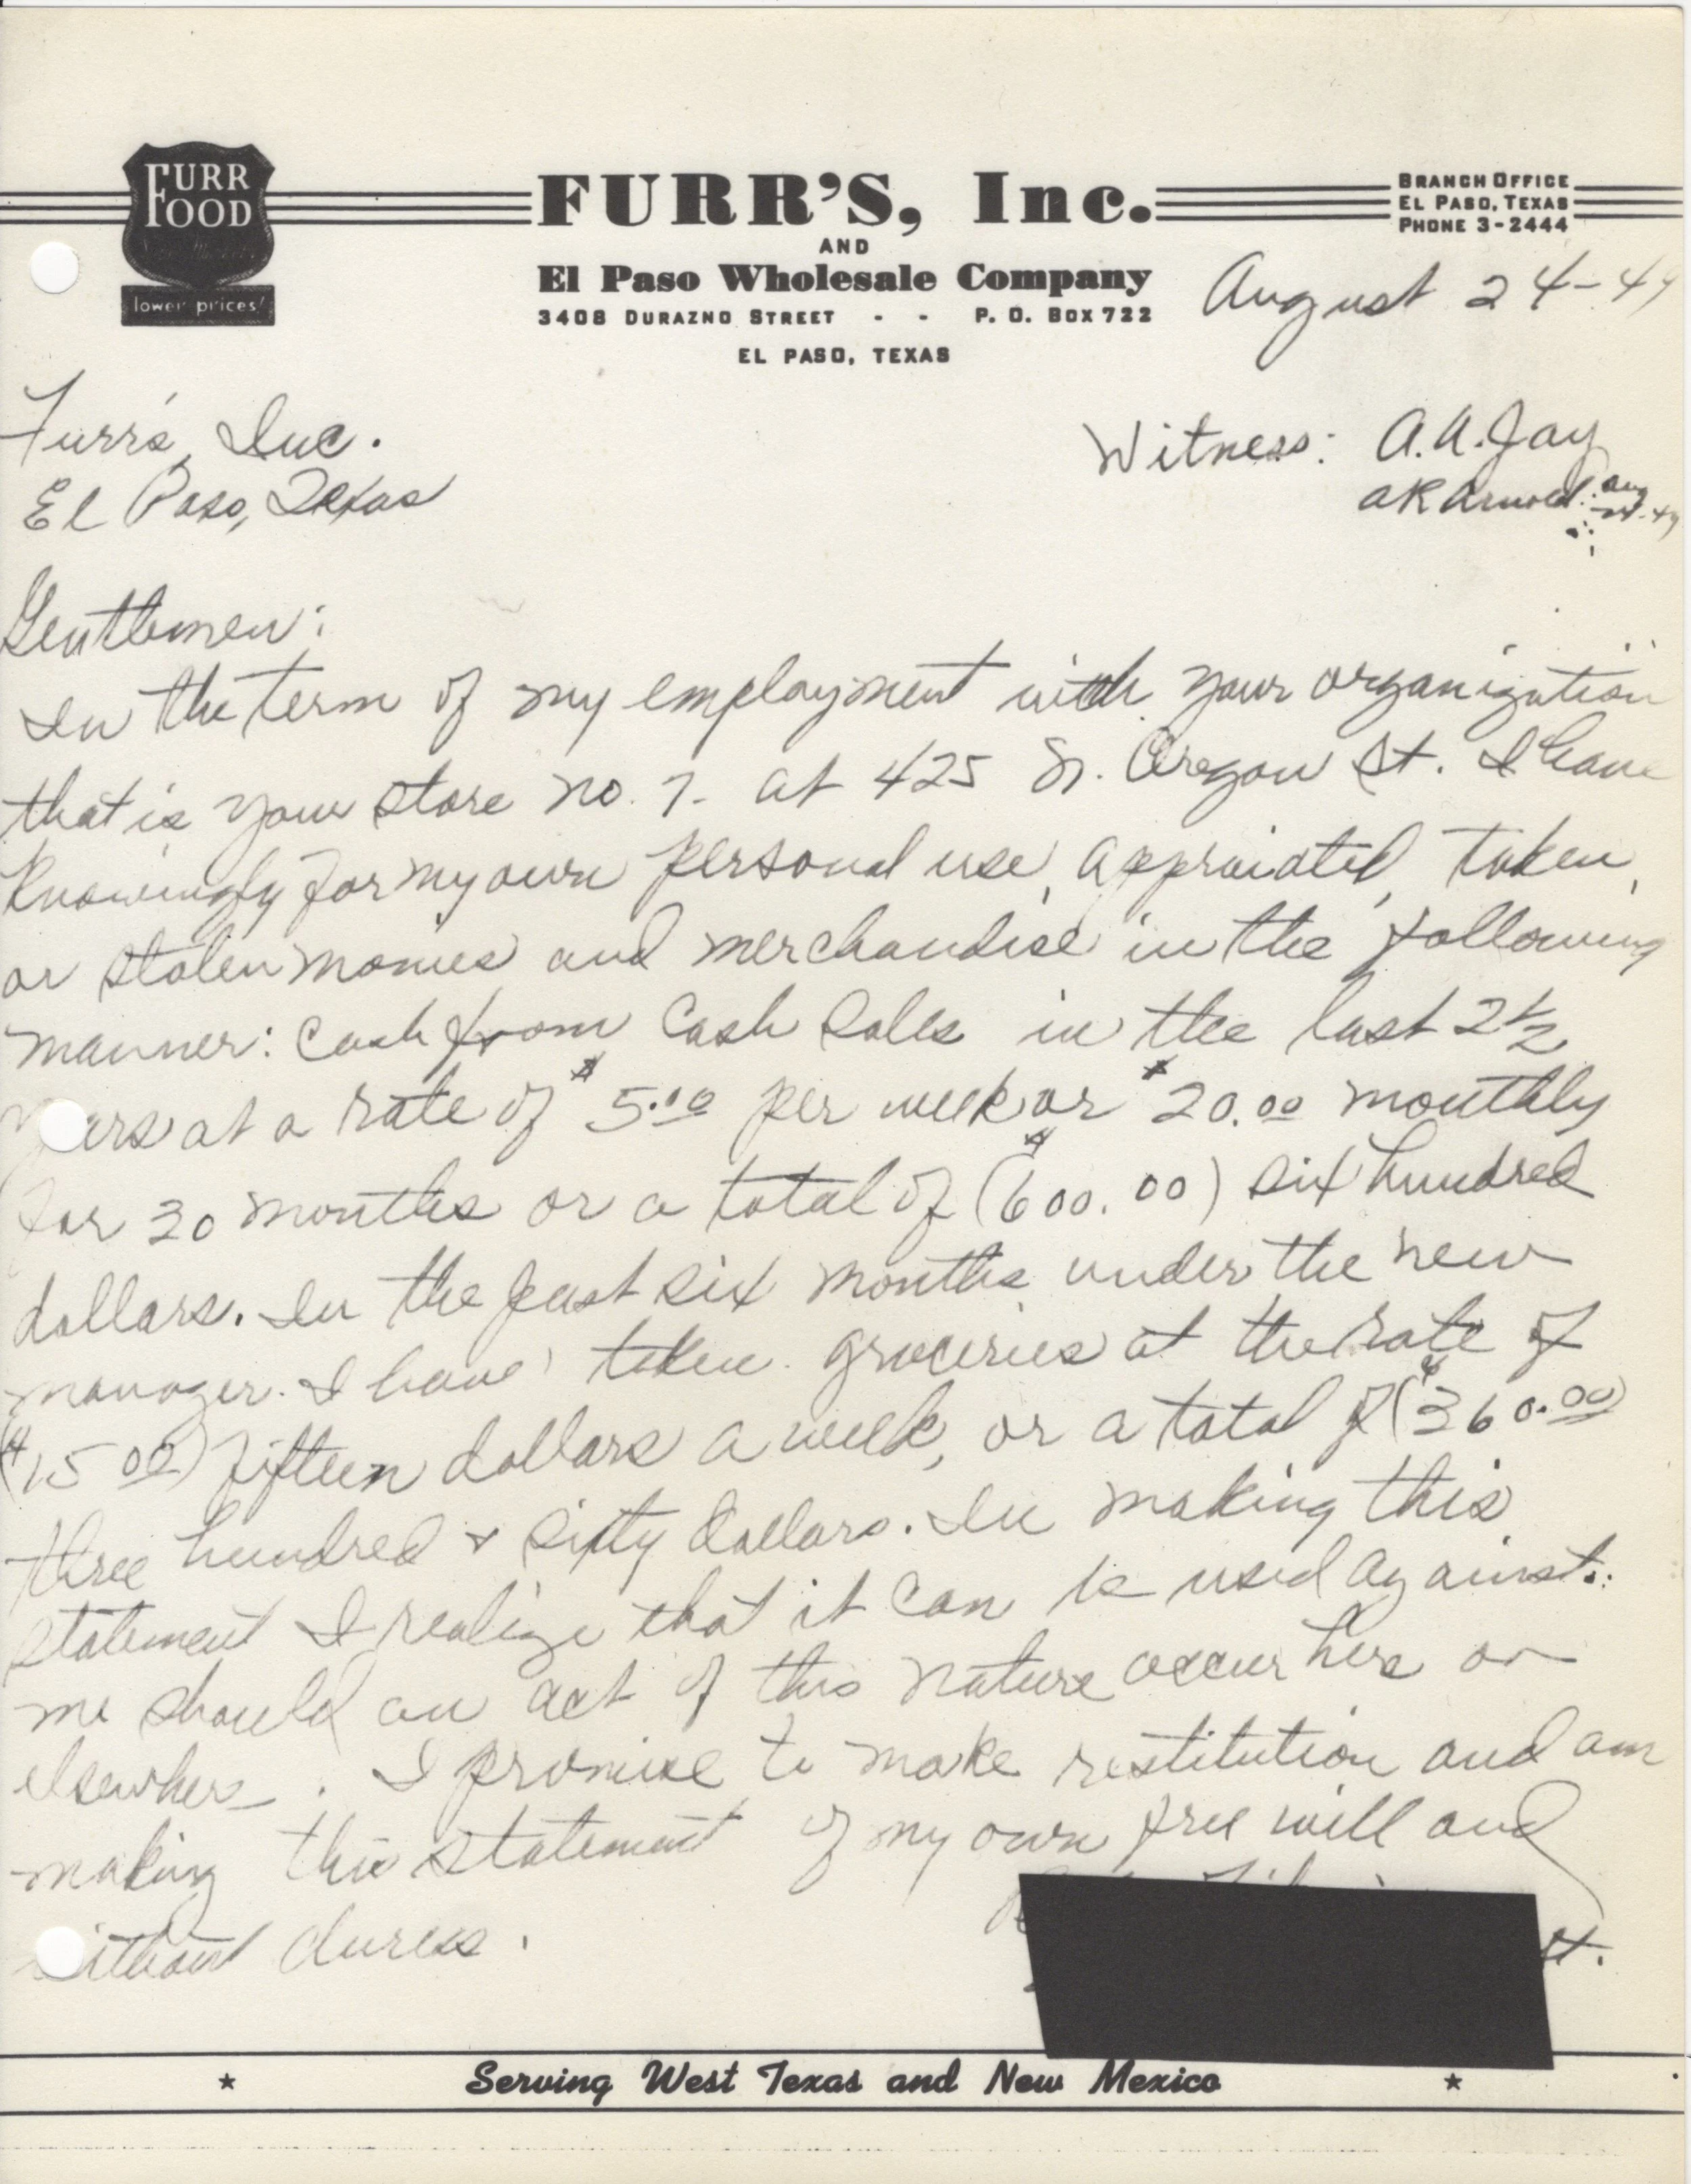 FURR
FOOD
lower prices!
FURR'S, Inc.
AND
El Paso Wholesale Company
3408 DURAZNO STREET - - P. O. BOX 722
EL PASO, TEXAS
BRANCH OFFICE
EL PASO, TEXAS
PHONE 3-2444
August 24-49
Furr's, Inc.
El Paso, Texas
Witness: A.A. Jay
AR Arnold Aug
Gentlemen:
In the term of my employment with your organization
that is your store no. 7. at 425 N. Oregon St. I have
knowingly for my own personal use, appraiated, taken,
or stolen monies and merchandise in the following
manner: Cash from Cash Sales in the last 2 1/2
years at a rate of $5.00 per week or $20.00 monthly
for 30 months or a total of ($600.00) six hundred
dollars. In the past six months under the new
manager. I have taken groceries at the rate of
($15 00) fifteen dollars a week, or a total of ($360.00)
three hundred & sixty dollars. In making this
statement I realize that it can be used against
me should an act of this nature occur here or
elsewhere. I promise to make restitution and am
making this statement of my own free will and
without duress.
St.
Serving West Texas and New Mexico